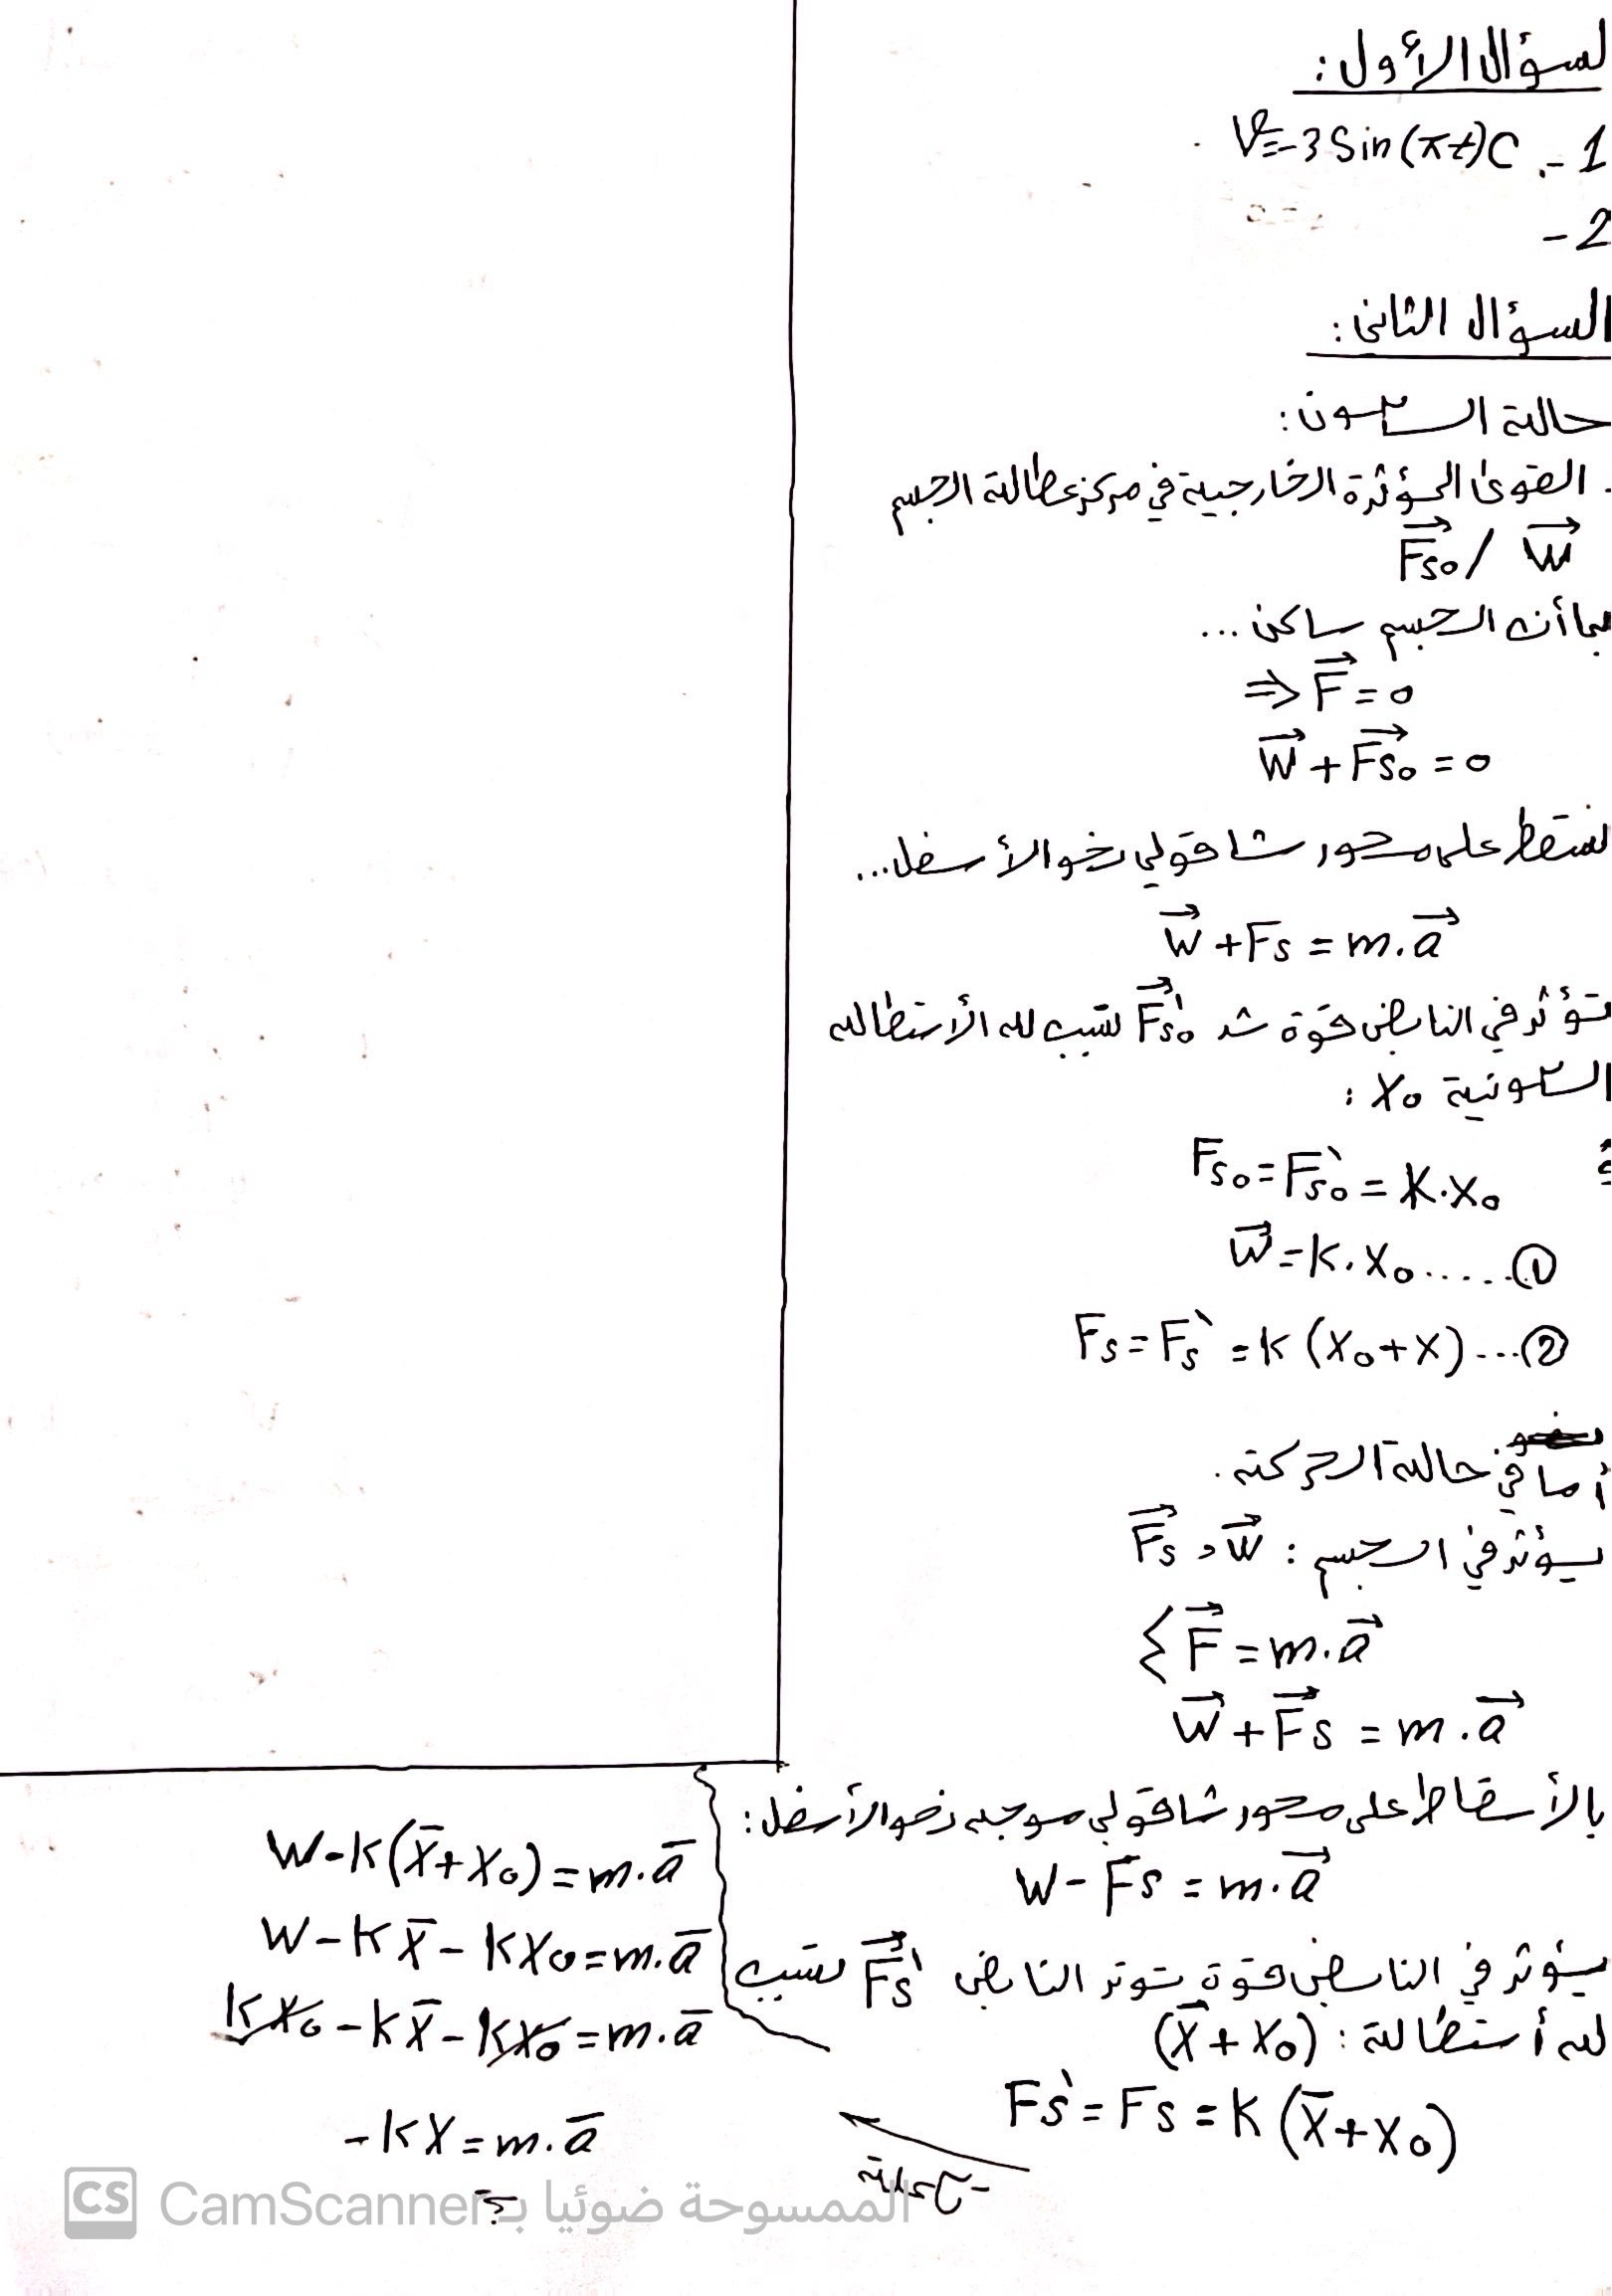 لسؤال الأول:
1 - C) V=-3 Sin(πt)
2 -
السؤال الثاني:
حالة السكون:
. القوى المؤثرة الخارجية في مركز عطالة الجسم
W⃗ / F⃗s₀
بما أن الجسم ساكن ...
⇒ F⃗ = 0
W⃗ + F⃗s₀ = 0
نسقط على محور شاقولي نحو الأسفل...
W⃗ + Fs = m.a⃗
تؤثر في النابض قوة شد F⃗s₀' تسبب له الأستطالة
السكونية X₀ :
Fs₀ = Fs₀` = K.X₀
W⃗ = K.X₀ ..... ①
Fs = Fs` = K (X₀+X) ... ②
أما في حالة الحركة.
يؤثر في الجسم : W⃗ , F⃗s
Σ F⃗ = m.a⃗
W⃗ + F⃗s = m.a⃗
بالأسقاط على محور شاقولي موجه نحو الأسفل:
W - Fs = m.a⃗
يؤثر في النابض قوة توتر النابض F⃗s' تسبب
له أستطالة : (X̄ + X₀)
Fs` = Fs = K (X̄ + X₀)
W - K(X̄ + X₀) = m.ā
W - KX̄ - KX₀ = m.ā
KX₀ - KX̄ - KX₀ = m.ā
-KX = m.ā
CS الممسوحة ضوئيا بـ CamScanner